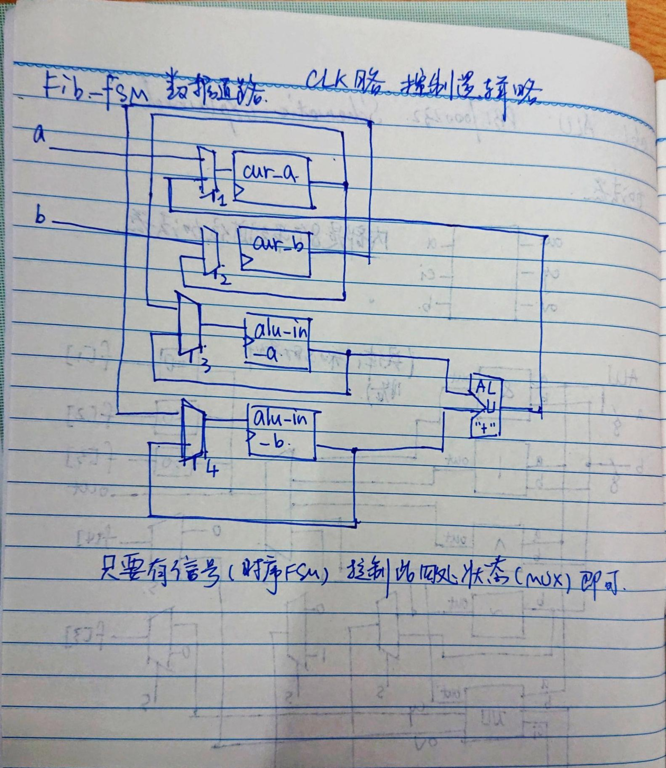 Fib-fsm 数据通路. CLK 略. 控制逻辑略
a
cur-a.
1
b
cur-b
2
alu-in
-a.
3
ALU
"+"
alu-in
-b.
4
只要有信号(时序FSM) 控制此四处状态(MUX) 即可.